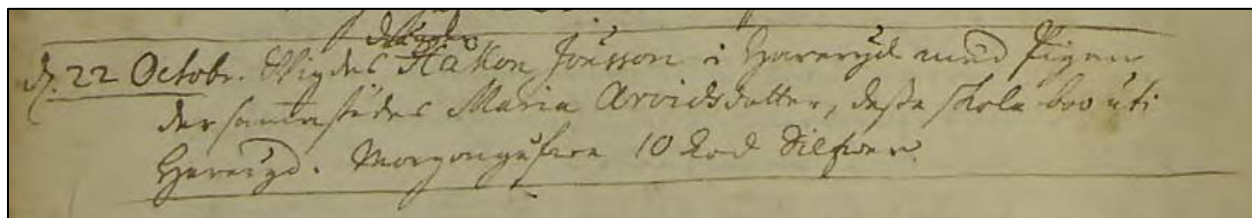 drängen
d. 22 Octobr. Wigdes Håkon Jonsson i Hareryd med Pigan
dersammastädes Maria Arvidsdotter, desse skola boo uti
Hareryd. Morgongåfwa 10 Lod Silfwer.